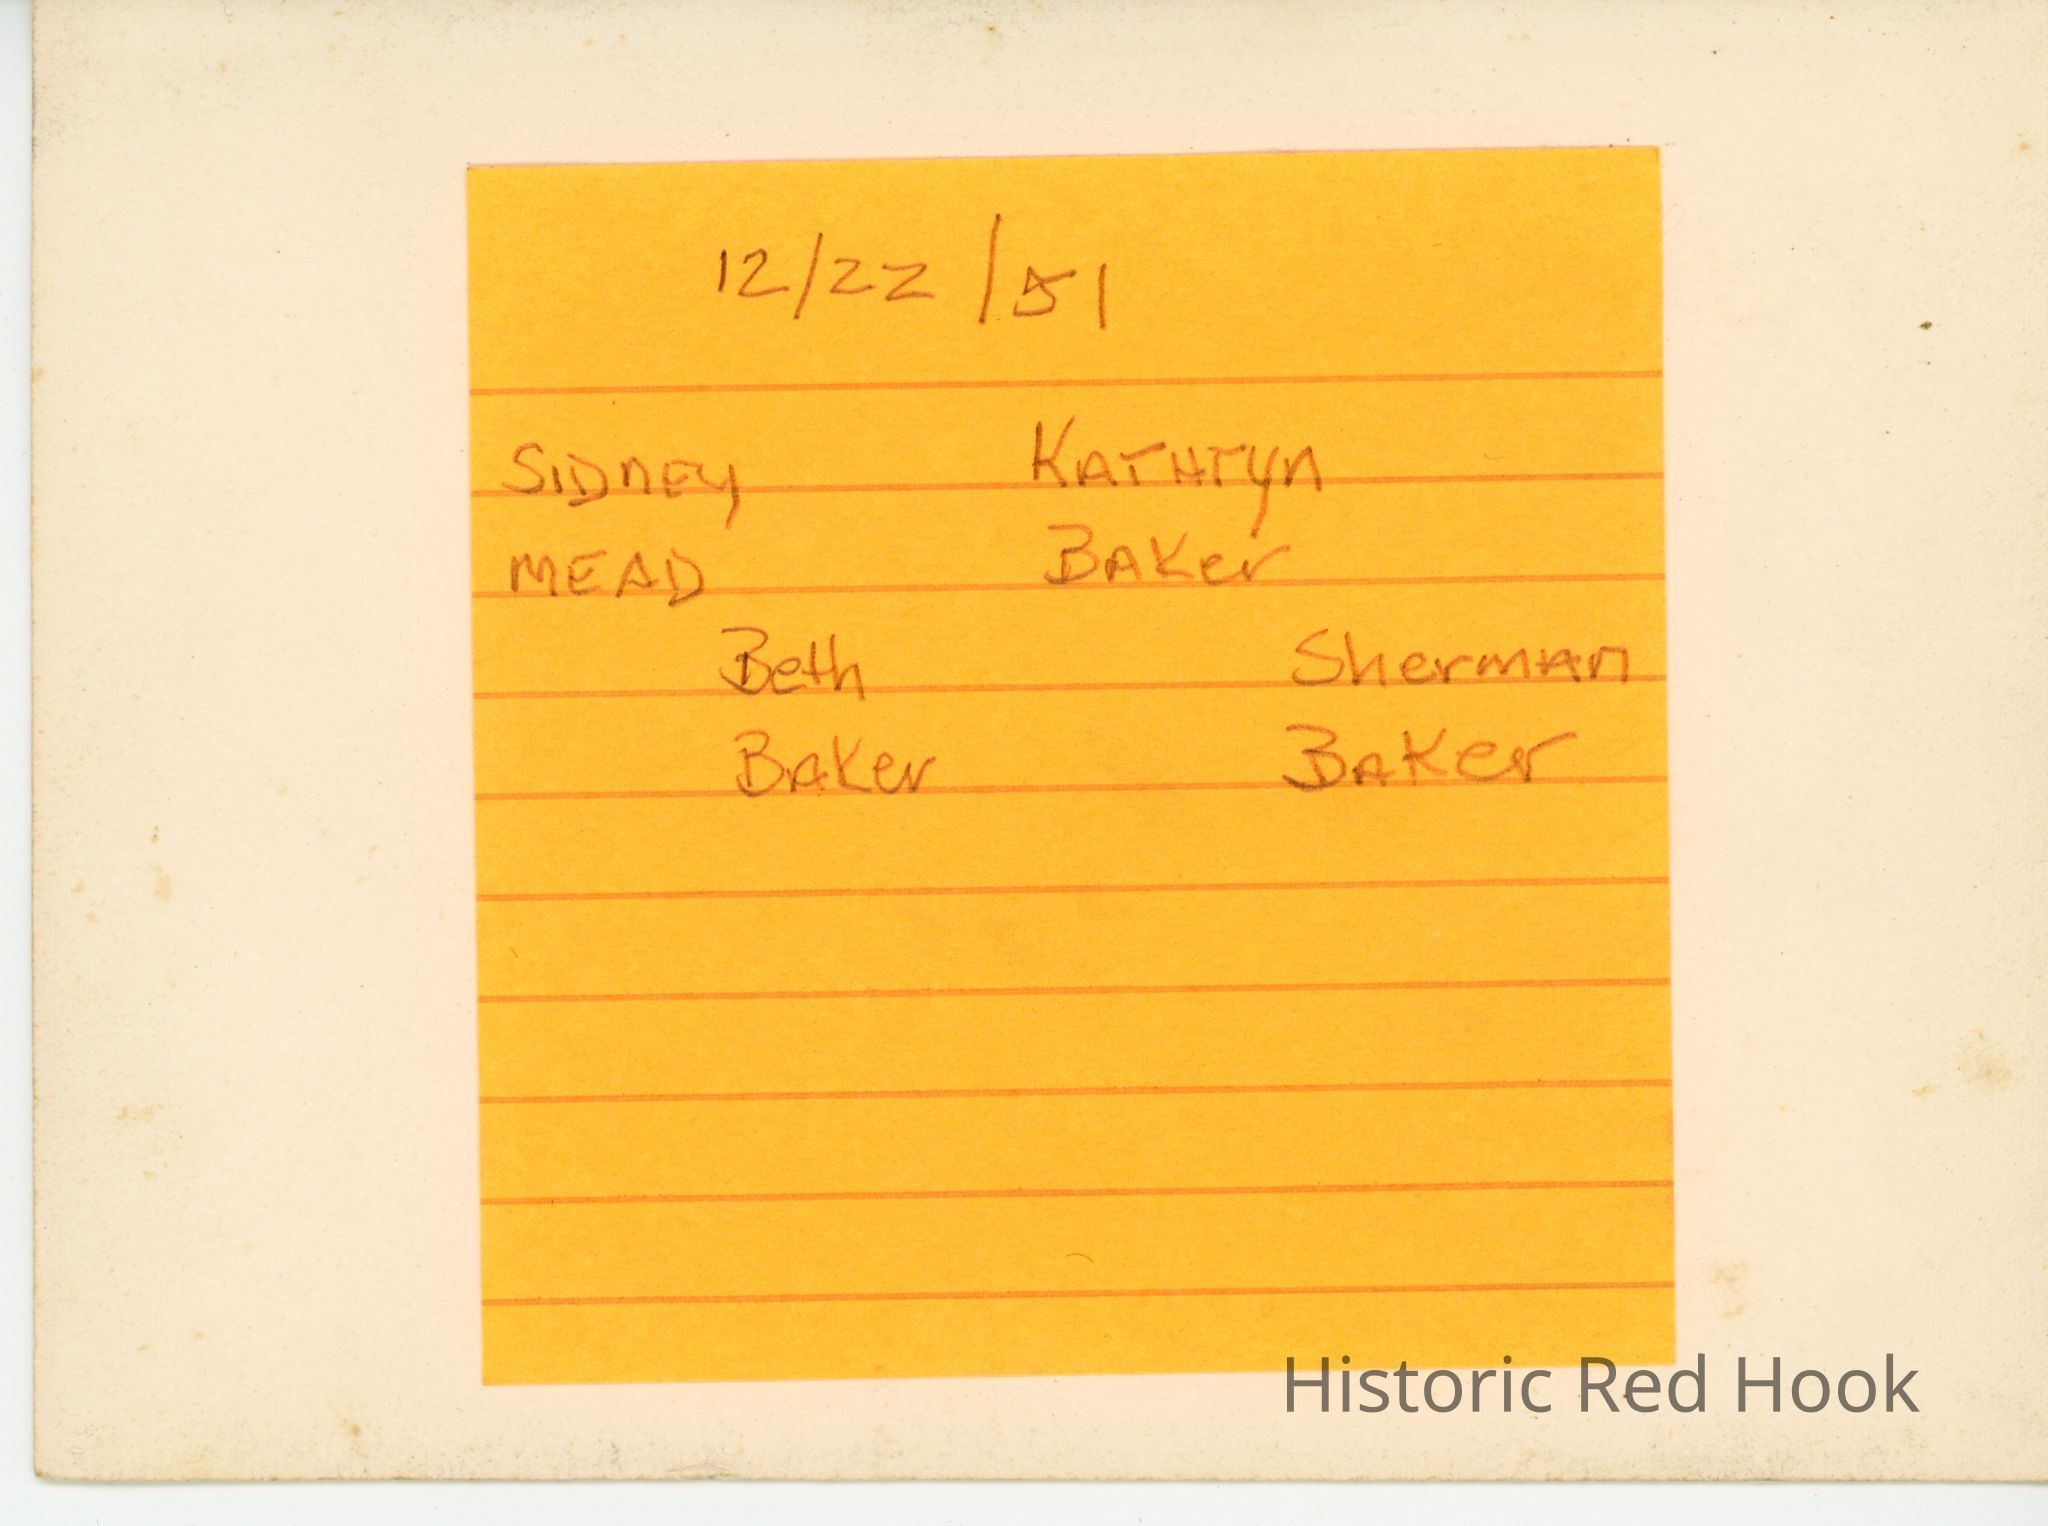 12/22/51
SIDNEY KATHTYN
MEAD BAKer
Beth SherMAN
BAKer BAKer
Historic Red Hook